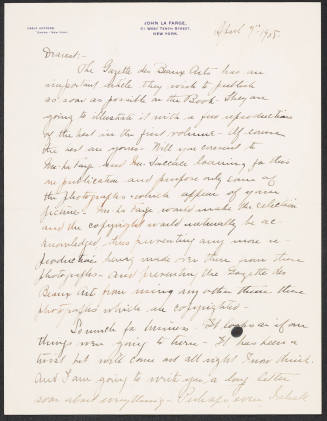 CABLE ADDRESS,
JOHN LA FARGE,
51 WEST TENTH STREET,
NEW YORK.
April 9th 1905
Dearest:-
The Gazette des Beaux Arts has an
important article they wish to publish
as soon as possible on the Book. They are
going to illustrate it with a few reproductions
of the best in the first volume. Of course
the best are yours. Will you consent to
Mr. La Farge and Mr. loaning for this
publication and purpose only some of
the photographs which appear of your
pictures. Mr. La Farge would make the selection
and the copyright would naturally be ac-
knowledged thus preventing any more re-
production being made over there from these
photographs - and preventing the Gazette des
Beaux Arts from using any other than these
photographs which are copyrighted -
So much for business - It looks as if some
things were going to there - It has been a
but will come out all right I now think.
And I am going to write you a long letter
soon about everything - Perhaps even